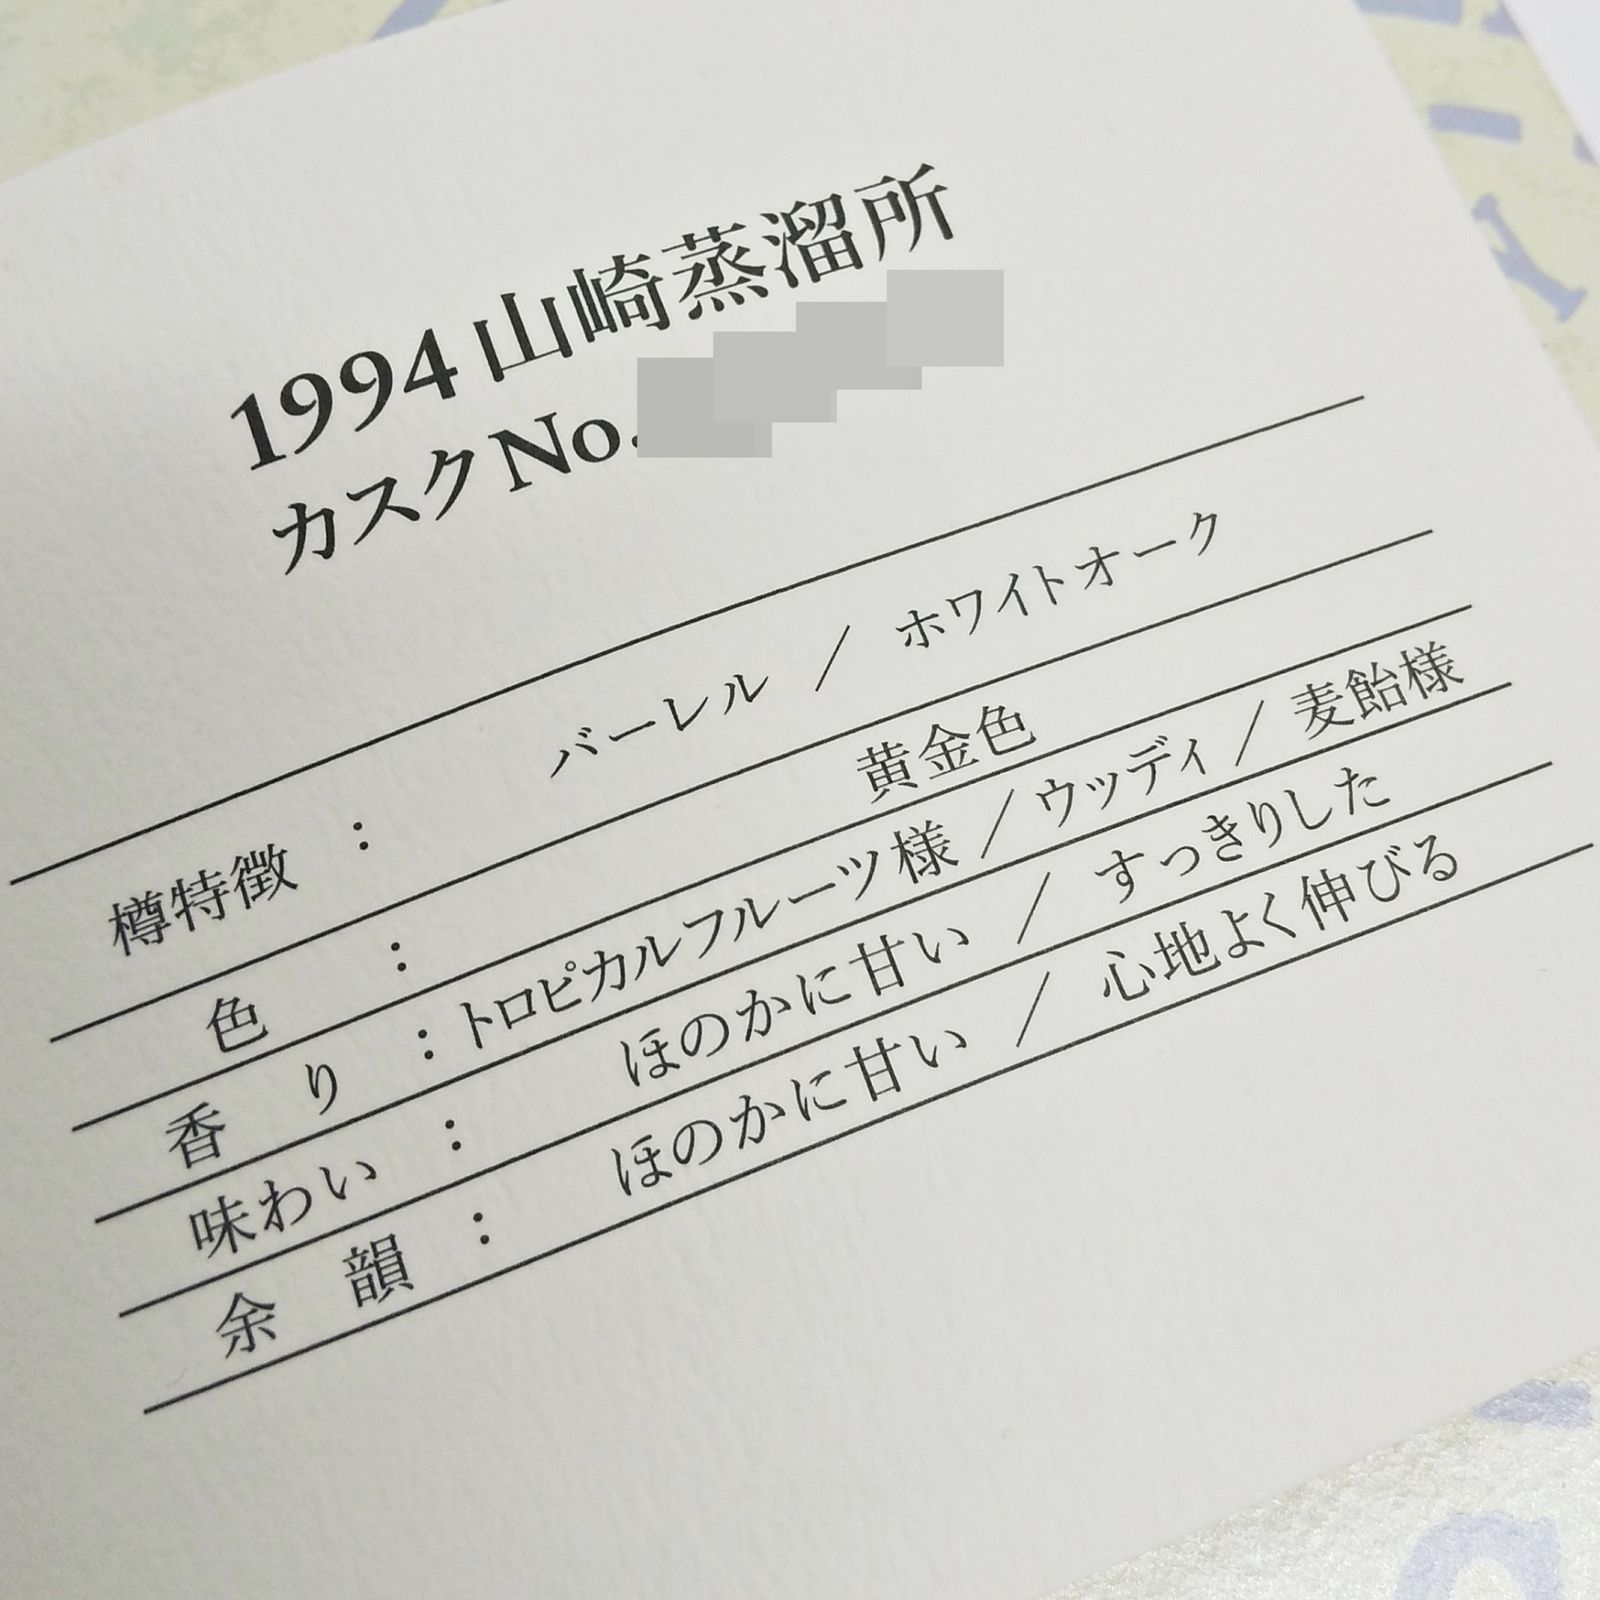 1994 山崎蒸溜所
カスクNo.
樽特徴 : バーレル / ホワイトオーク
色 : 黄金色
香り : トロピカルフルーツ様 / ウッディ / 麦飴様
味わい : ほのかに甘い / すっきりした
余韻 : ほのかに甘い / 心地よく伸びる